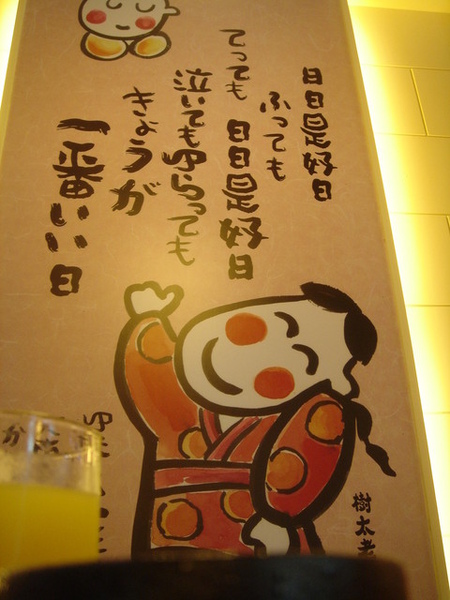 日日是好日
ふっても
てっても 日日是好日
泣いてもわらっても
きょうが
一番いい日
樹太老